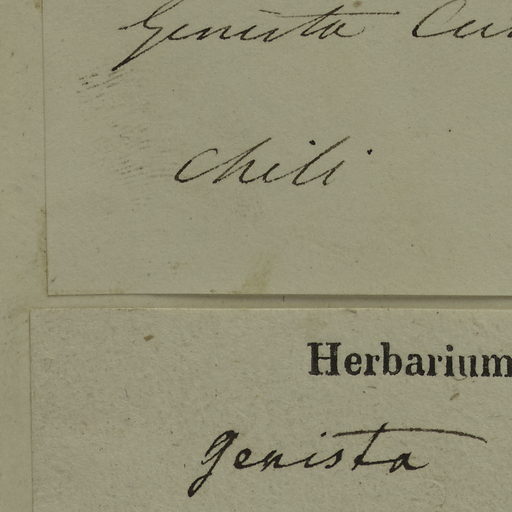 Genista
Chili
Herbarium
Genista